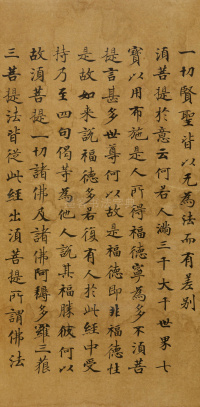 一切賢聖皆以无為法而有差別
湏菩提於意云何若人滿三千大千世界七
寳以用布施是人所得福德寧為多不湏菩
提言甚多世尊何以故是福德即非福德性
是故如来說福德多若復有人於此經中受
持乃至四句偈䓁為他人說其福勝彼何以
故湏菩提一切諸佛及諸佛阿耨多羅三藐
三菩提法皆從此經出湏菩提所謂佛法